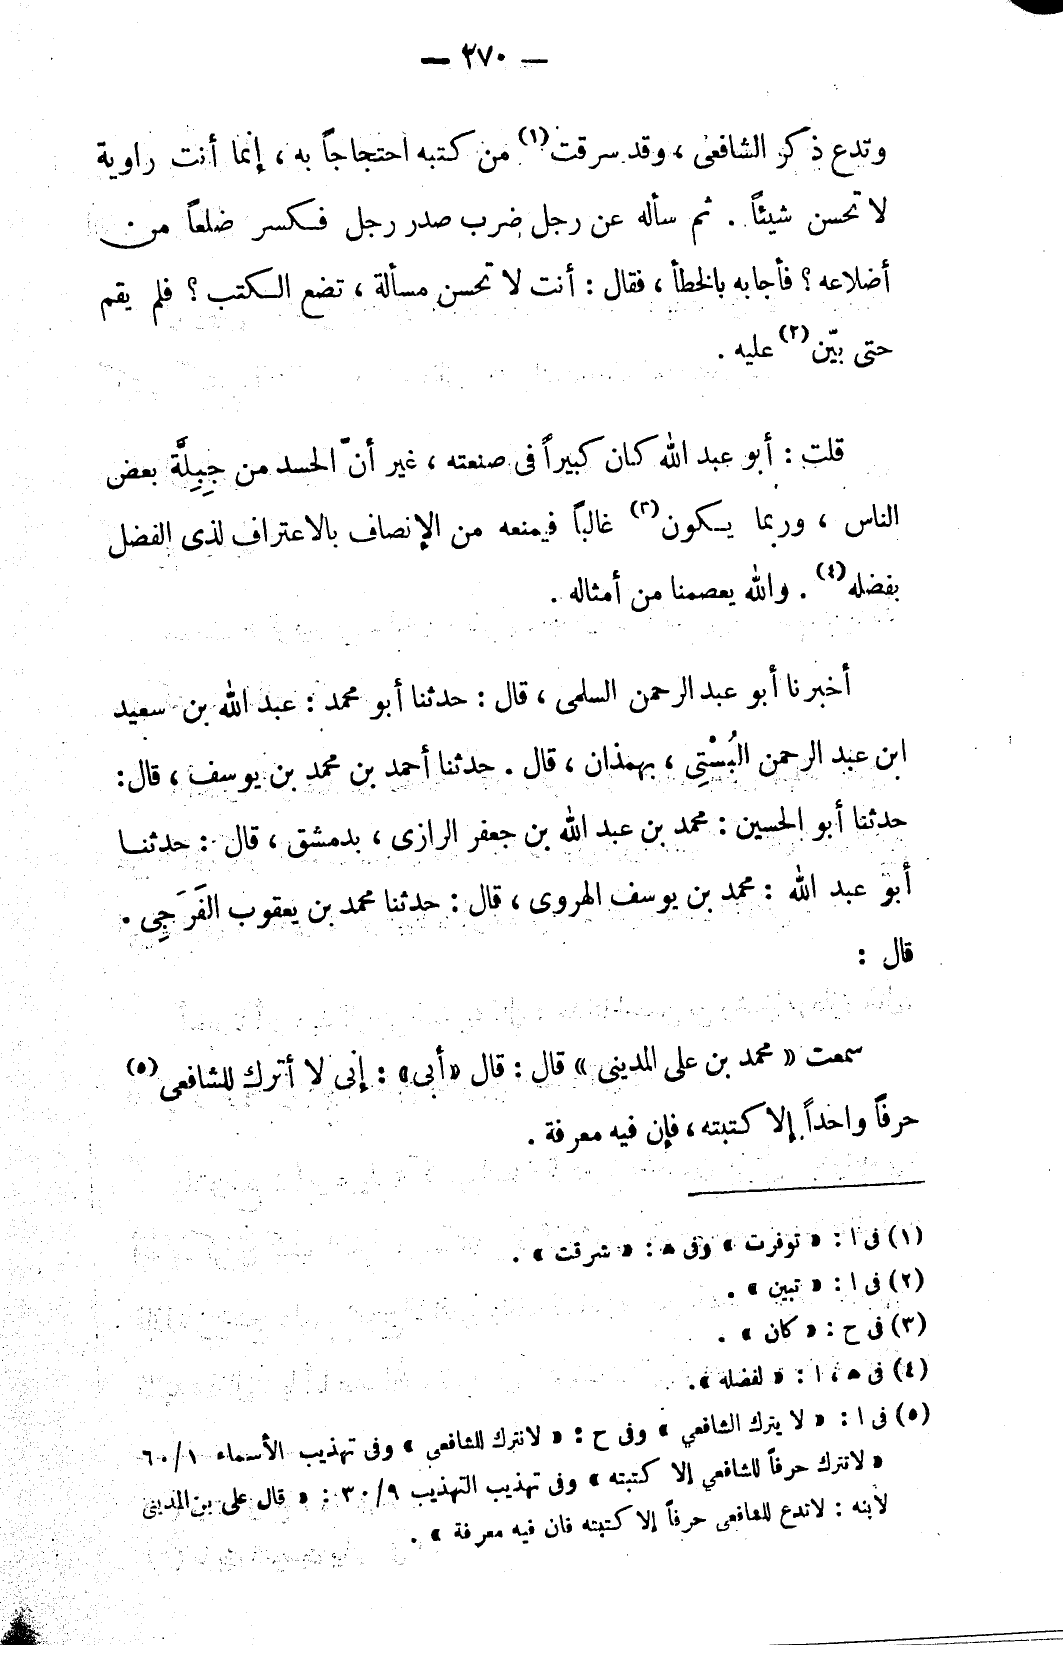 — ٢٧٠ —
وتدع ذكر الشافعى ، وقد سرقت(١) من كتبه احتجاجاً به ، إنما أنت راوية
لا تحسن شيئاً . ثم سأله عن رجل ضرب صدر رجل فكسر ضلعاً من
أضلاعه ؟ فأجابه بالخطأ ، فقال : أنت لا تحسن مسألة ، تضع الكتب ؟ فلم يقم
حتى بيّن(٢) عليه .
قلت : أبو عبد الله كان كبيراً فى صنعته ، غير أنّ الحسد من جِبِلَّة بعض
الناس ، وربما يكون(٣) غالباً فيمنعه من الإنصاف بالاعتراف لذى الفضل
بفضله(٤) . والله يعصمنا من أمثاله .
أخبرنا أبو عبد الرحمن السلمى ، قال : حدثنا أبو محمد : عبد الله بن سعيد
ابن عبد الرحمن البُسْتِى ، بهمذان ، قال . حدثنا أحمد بن محمد بن يوسف ، قال :
حدثنا أبو الحسين : محمد بن عبد الله بن جعفر الرازى ، بدمشق ، قال : حدثنا
أبو عبد الله : محمد بن يوسف الهروى ، قال : حدثنا محمد بن يعقوب الفَرَجِى .
قال :
سمعت « محمد بن على المدينى » قال : قال «أبى» : إنى لا أترك للشافعى(٥)
حرفاً واحداً إلا كتبته ، فإن فيه معرفة .
(١) فى ا : « توفرت » وفى ه : « شرقت » .
(٢) فى ا : « تبين » .
(٣) فى ح : « كان » .
(٤) فى ه ، ا : « لفضله » .
(٥) فى ا : « لا يترك الشافعي » وفى ح : « لانترك للشافعي » وفى تهذيب الأسماء ٦٠/١
« لانترك حرفاً للشافعي إلا كتبته » وفى تهذيب التهذيب ٣٠/٩ : « قال على بن المدينى
لابنه : لاتدع للشافعى حرفاً إلا كتبته فان فيه معرفة » .